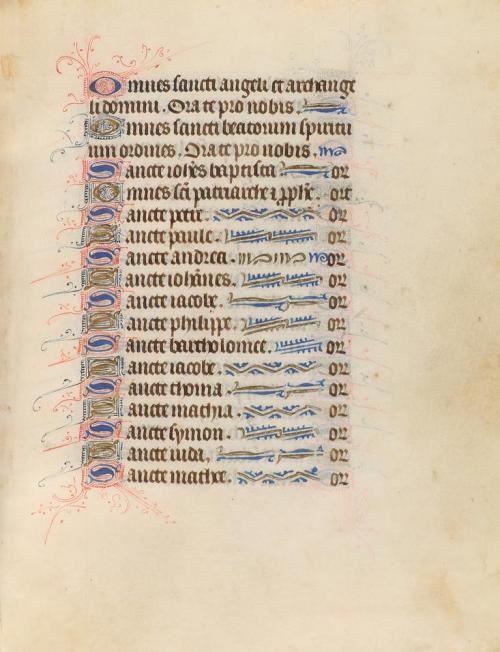 Omnes sancti angeli et archange
li domini. Orate pro nobis.
Omnes sancti beatorum spiritu
um ordines. Orate pro nobis.
Sancte iohes baptista or
Omnes sci patriarche i pphe. ort
Sancte petre. or
Sancte paule. or
Sancte andrea. or
Sancte iohannes. or
Sancte iacobe. or
Sancte philippe. or
Sancte bartholomee. or
Sancte iacobe. or
Sancte thoma. or
Sancte mathia. or
Sancte symon. or
Sancte iuda. or
Sancte mathee. or